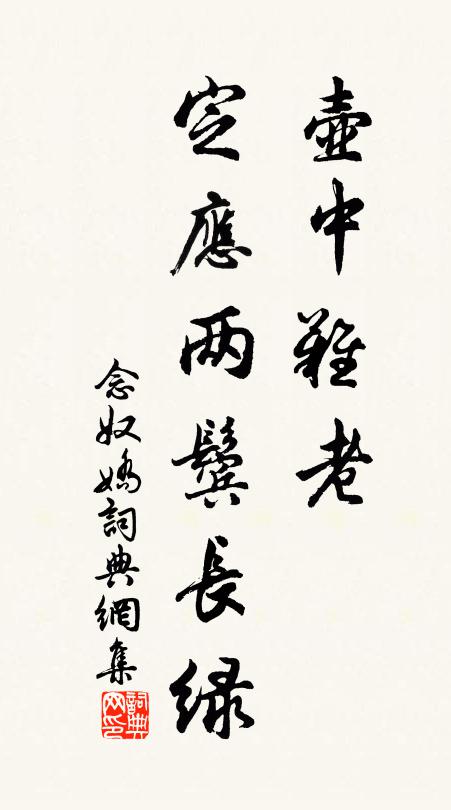 壺中難老
定應両鬓長緑
念奴嬌詞典網集
詞典网印